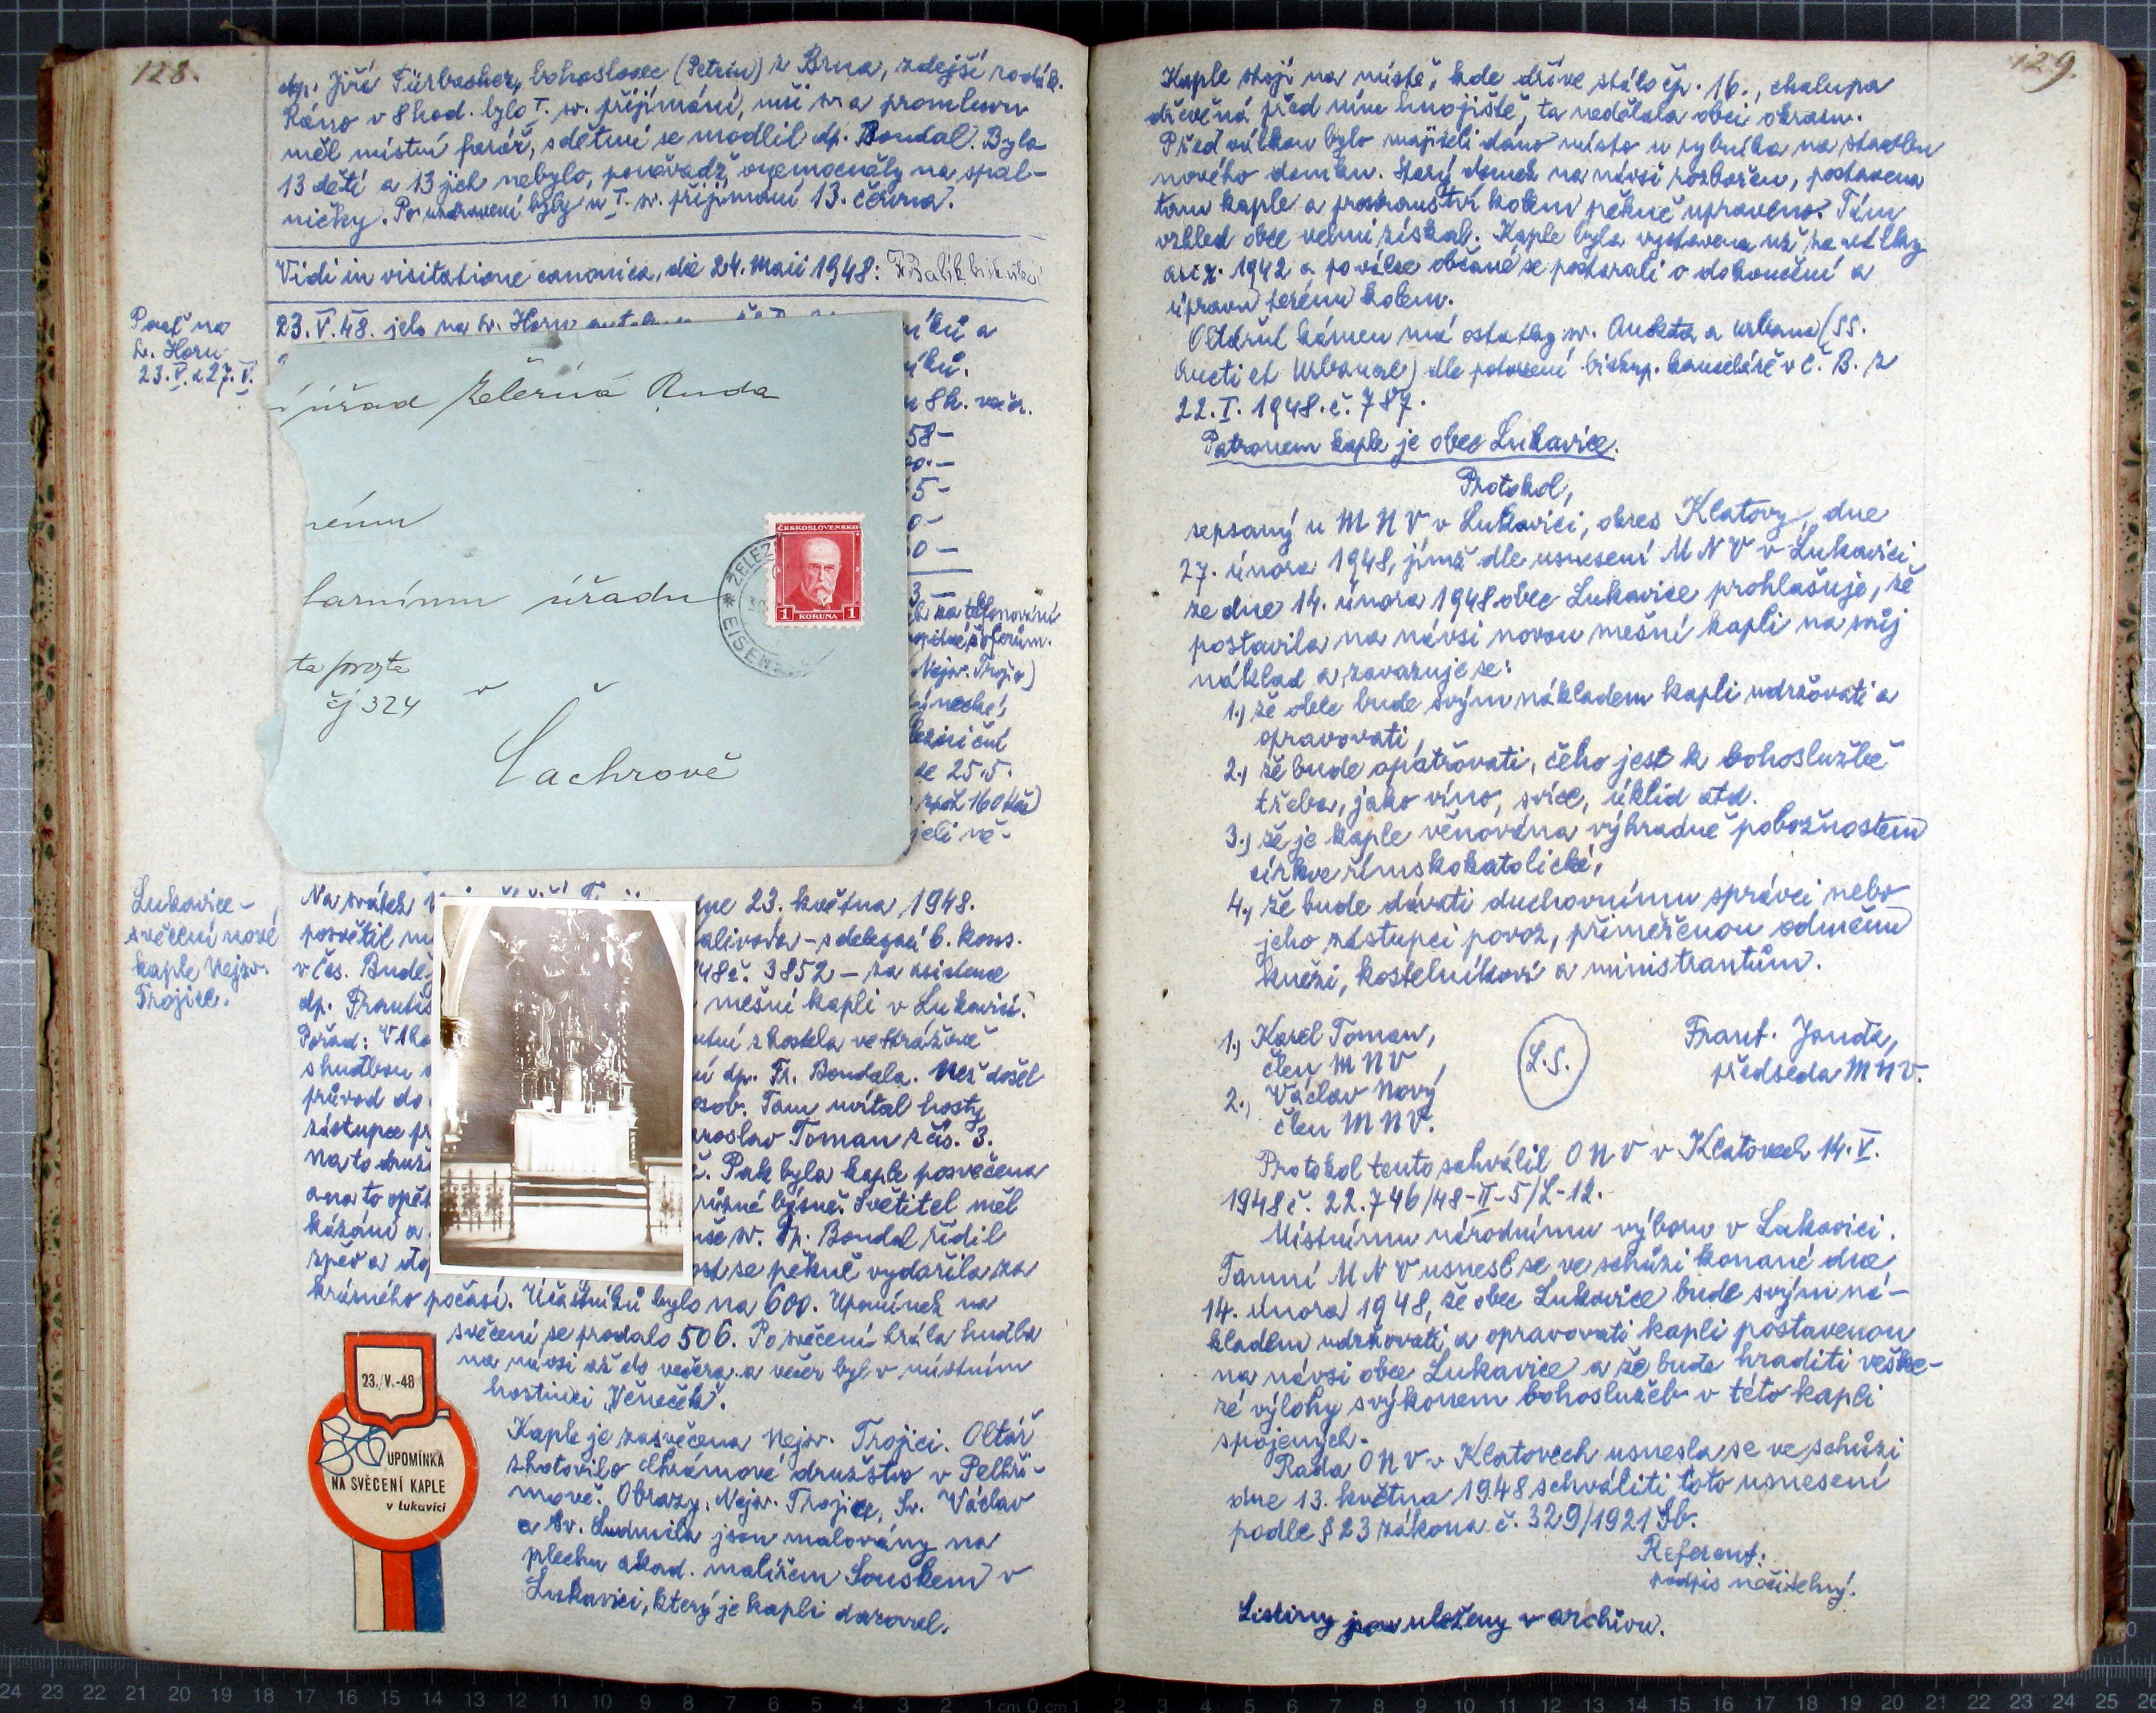 128.
dp. Jiří Fürbacher, bohoslovec (Petrin) z Brna, zdejší rodák.
Ráno v 8 hod. bylo I. sv. přijímání, mši sv. a promluvu
měl místní farář, s dětmi se modlil dp. Boudal. Bylo
13 dětí a 13 jich nebylo, poněvadž onemocněly na spal-
ničky. Po uzdravení byly u I. sv. přijímání 13. června.
Vidi in visitatione canonica, die 24. Maii 1948:
Pouť na
sv. Horu
23.V. a 27.V.
23.V.48. jelo na sv. Horu
íků a
íků.
8h. več.
58-
00.-
5-
0-
0-
3-
za telefonování
šoferům.
Nejsv. Trojice)
25.5.
160 Kčs)
jeli vě-
úřad Železná Ruda
nému
larnímu úřadu
ta pošta
čj 324 v
Čachrově
ČESKOSLOVENSKO
1 KORUNA 1
ŽELEZ
EISEN
Lukavice-
svěcení nové
kaple Nejsv.
Trojice.
Na svátek
dne 23. května 1948.
posvětil
alivoda - s delegací b. kons.
v Čes. Buděj
48 č. 3852 - za asistence
dp. Františ
mešní kapli v Lukavici.
Pořad: V 1 ho
z kostela ve Strážově
s hudbou
dp. Fr. Boudala. Než došel
průvod do
osob. Tam uvítal hosty
zástupce
aroslav Toman z čís. 3.
Na to druž
Pak byla kaple posvěcena
a na to opět
různé básně. Světitel měl
kázání a
mše sv. Dp. Boudal řídil
zpěv a
ost se pěkně vydařila za
krásného počasí. Účastníků bylo na 600. Upomínek na
svěcení se prodalo 506. Po svěcení hrála hudba
na návsi až do večera a večer byl v místním
hostinci „Věneček".
Kaple je zasvěcena Nejsv. Trojici. Oltář
zhotovilo Chrámové družstvo v Pelhři-
mově. Obrazy: Nejsv. Trojice, Sv. Václav
a Sv. Ludmila jsou malovány na
plechu akad. malířem Souškem v
Lukavici, který je kapli daroval.
23./V.-48
UPOMÍNKA
NA SVĚCENÍ KAPLE
v Lukavici
129.
Kaple stojí na místě, kde dříve stálo čp. 16., chalupa
dřevěná před ním hnojiště, ta nedělala obci okrasu.
Před válkou bylo majiteli dáno místo u rybníka na stavbu
nového domku. Starý domek na návsi rozbořen, postavena
tam kaple a prostranství kolem pěkně upraveno. Tím
vzhled obce velmi získal. Kaple byla vystavena už za války
asi r. 1942 a po válce občané se postarali o dokončení a
úpravu terénu kolem.
Oltářní kámen má ostatky sv. Aukta a Urbana (SS.
Aucti et Urbanae) dle potvrzení biskup. kanceláře v Č. B. z
22.I.1948.č.787.
Patronem kaple je obec Lukavice.
Protokol,
sepsaný u MNV v Lukavici, okres Klatovy, dne
27. února 1948, jímž dle usnesení MNV v Lukavici
ze dne 14. února 1948 obec Lukavice prohlašuje, že
postavila na návsi novou mešní kapli na svůj
náklad a zavazuje se:
1.) že obec bude svým nákladem kapli udržovati a
opravovati,
2.) že bude opatřovati, čeho jest k bohoslužbě
třeba, jako víno, svíce, úklid atd.
3.) že je kaple věnována výhradně pobožnostem
církve římskokatolické,
4.) že bude dávati duchovnímu správci nebo
jeho zástupci povoz, přiměřenou odměnu
knězi, kostelníkovi a ministrantům.
1.) Karel Toman,
člen MNV,
2.) Václav Nový
člen MNV.
L.S.
Frant. Janda,
předseda MNV.
Protokol tento schválil ONV v Klatovech 14.V.
1948 č. 22.746/48-II-5/L-12.
Místnímu národnímu výboru v Lukavici.
Tamní MNV usnesl se ve schůzi konané dne
14. února 1948, že obec Lukavice bude svým ná-
kladem udržovati a opravovati kapli postavenou
na návsi obce Lukavice a že bude hraditi veške-
ré výlohy s výkonem bohoslužeb v této kapli
spojených.
Rada ONV v Klatovech usnesla se ve schůzi
dne 13. května 1948 schváliti toto usnesení
podle § 23 zákona č. 329/1921 Sb.
Referent:
podpis nečitelný.
Listiny jsou uloženy v archivu.
24 23 22 21 20 19 18 17 16 15 14 13 12 11 10 9 8 7 6 5 4 3 2 1 cm 0 cm 1 2 3 4 5 6 7 8 9 10 11 12 13 14 15 16 17 18 19 20 21 22 23 24 25 26